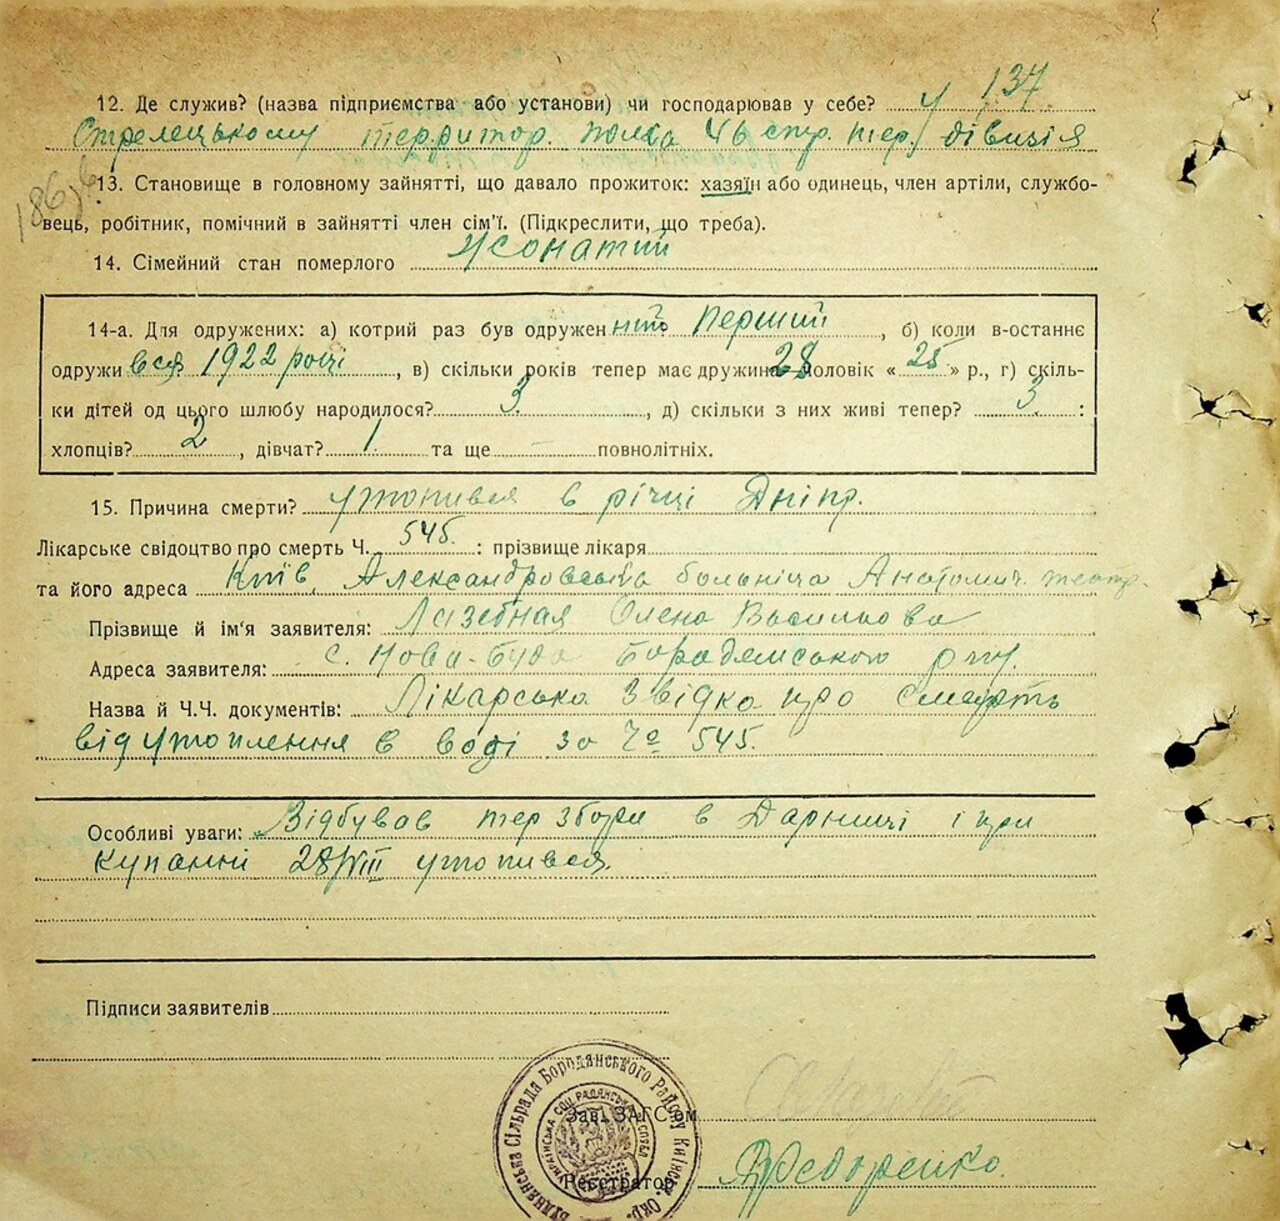 12. Де служив? (назва підприємства або установи) чи господарював у себе? у 137
Стрелецькому территор. полка 46 стр. тер. дівизія
186
13. Становище в головному зайнятті, що давало прожиток: хазяїн або одинець, член артіли, службо-
вець, робітник, помічний в зайнятті член сім'ї. (Підкреслити, що треба).
14. Сімейний стан померлого Жонатий
14-а. Для одружених: а) котрий раз був одружен Перший, б) коли в-останнє
одружився 1922 році, в) скільки років тепер має дружина 28 чоловік « 25 » р., г) скіль-
ки дітей од цього шлюбу народилося? 3, д) скільки з них живі тепер? 3 :
хлопців? 2, дівчат? 1 та ще — повнолітніх.
15. Причина смерти? утопився в річці Дніпр.
Лікарське свідоцтво про смерть Ч. 545. : прізвище лікаря
та його адреса Київ, Александровська больніца Анатомич. театр.
Прізвище й ім'я заявителя: Лазебная Олена Васильова
Адреса заявителя: с. Нова-Буда Бородянського р-ну.
Назва й Ч.Ч. документів: Лікарська Звідка про смерть
від утоплення в воді за Чо 545.
Особливі уваги: Відбував тер збори в Дарниці і при
купанні 28/VIII утопився.
Підписи заявителів
Зав. ЗАГС'ом
Реєстратор Федоренко
Сільрада Бородянського Району Київськ. Окр.
Українська Соц. Радянська